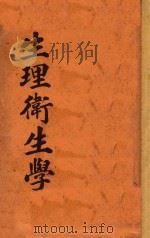 生理衛生學
www.mtoou.info